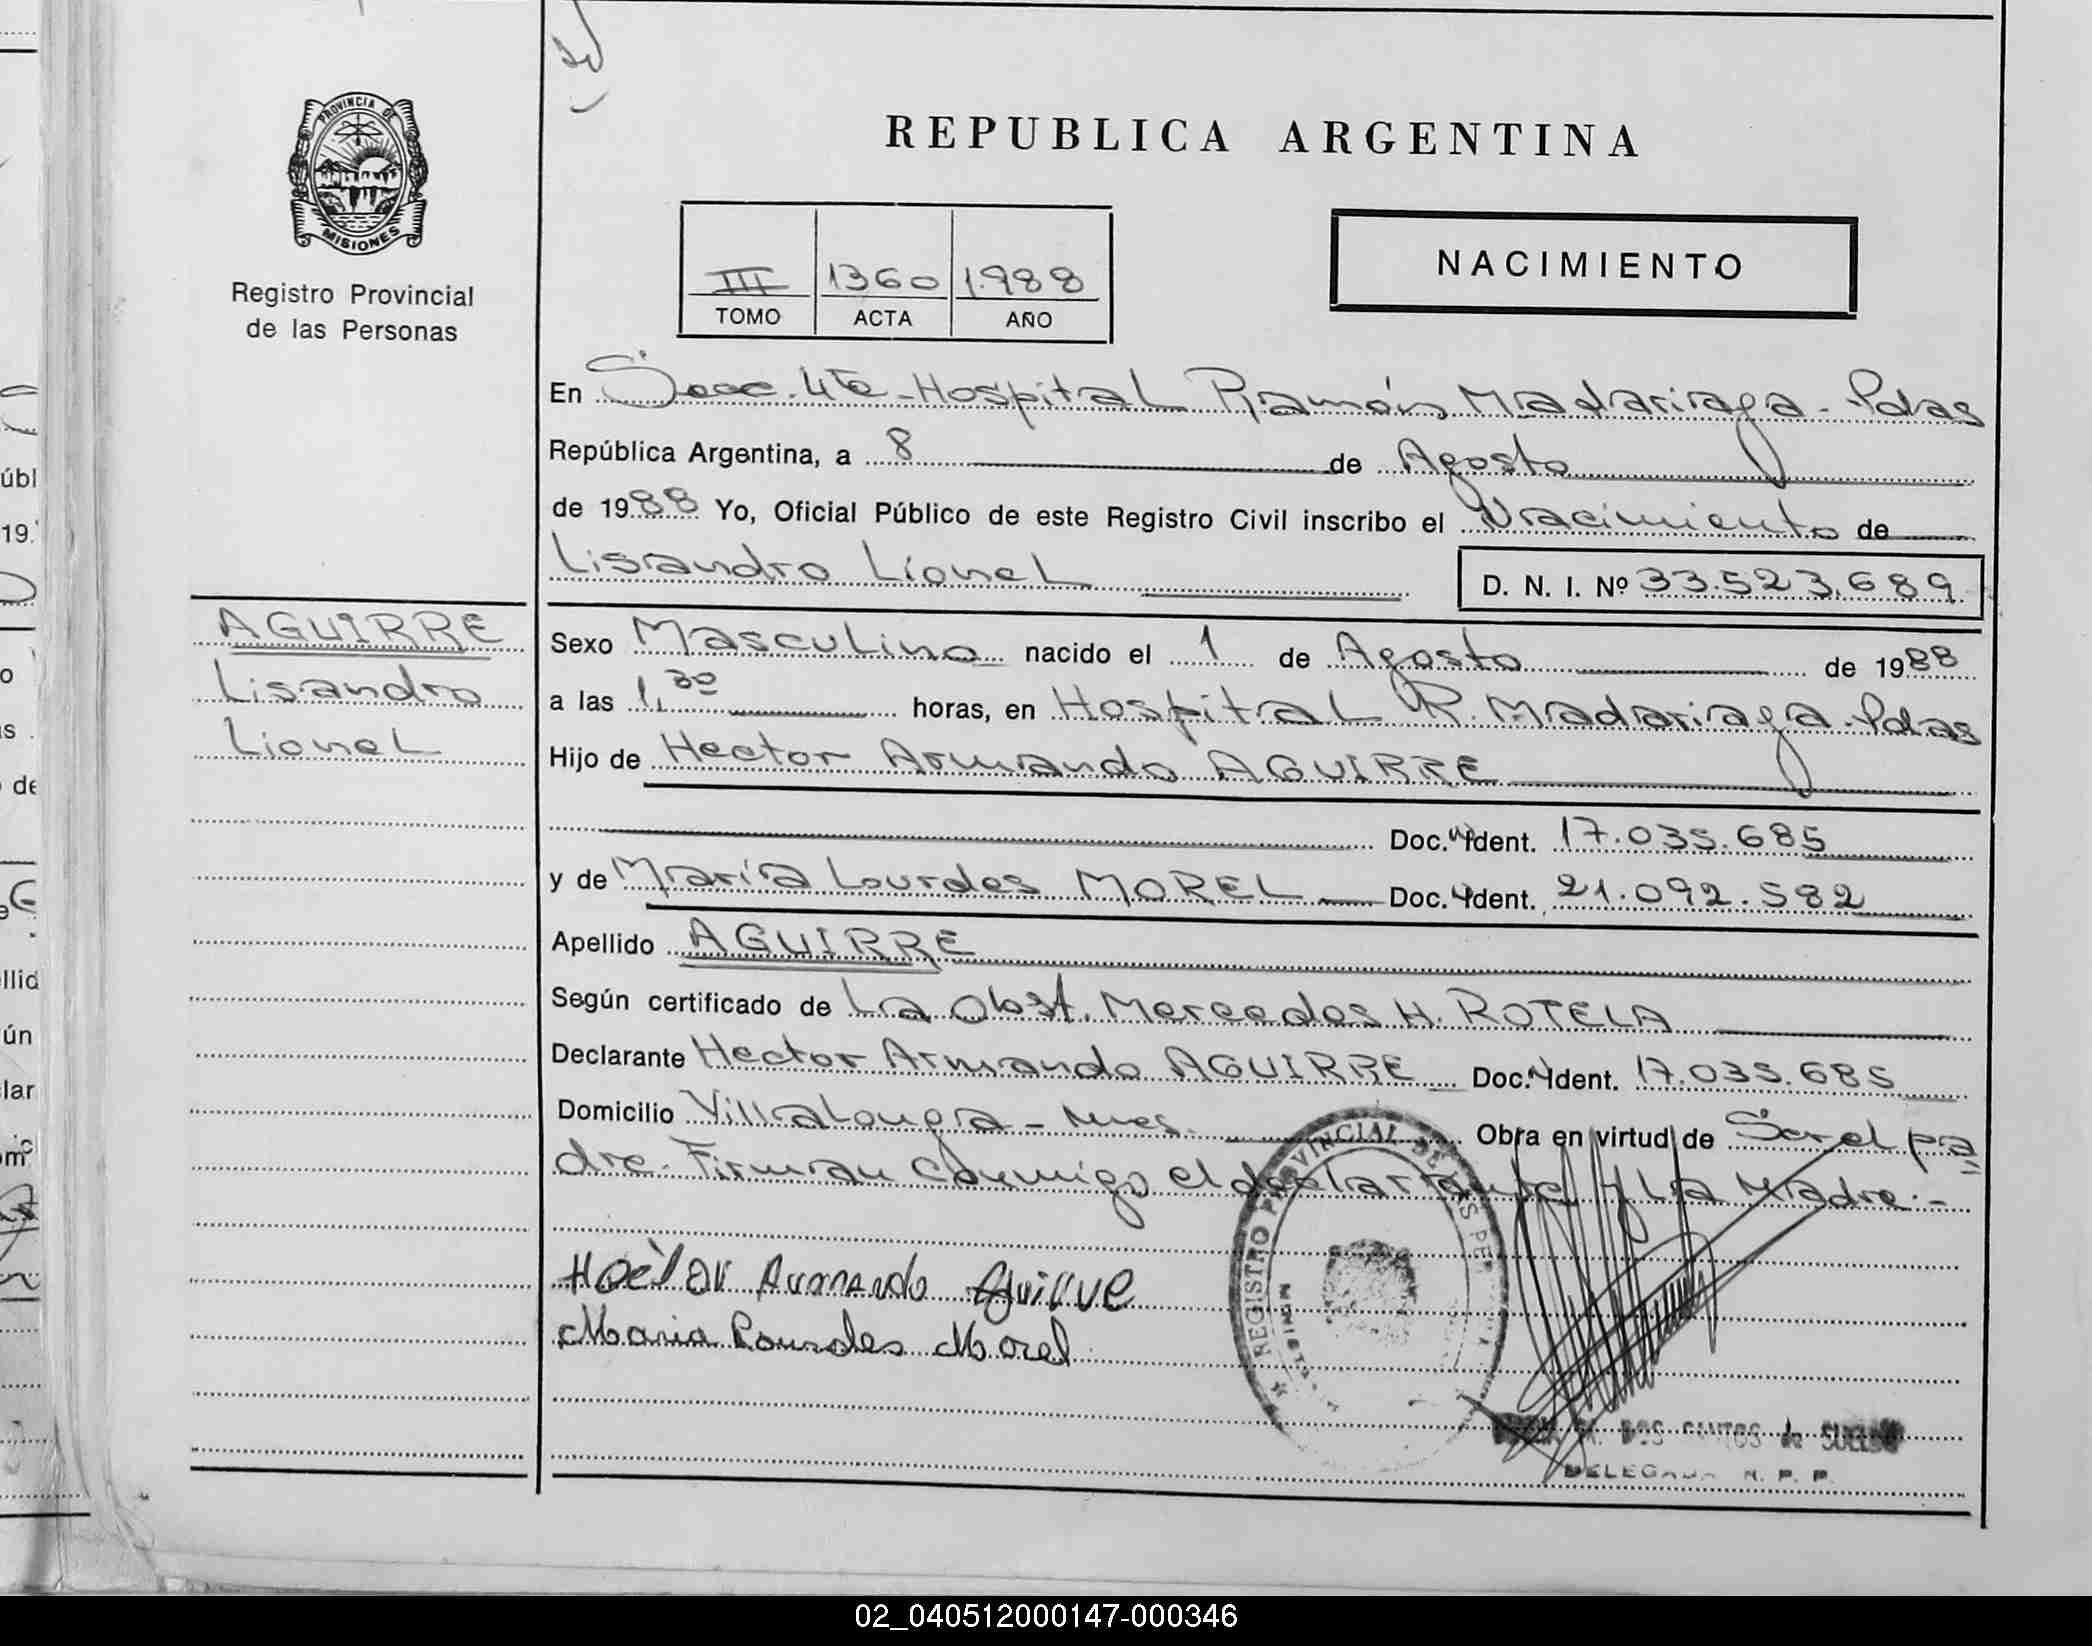 REPUBLICA ARGENTINA
PROVINCIA DE
MISIONES
Registro Provincial
de las Personas
III 1360 1.988
TOMO ACTA AÑO
NACIMIENTO
En Secc. 4ta - Hospital Ramón Madariaga - Pdas
República Argentina, a 8 de Agosto
de 1988 Yo, Oficial Público de este Registro Civil inscribo el Nacimiento de
Lisandro Lionel
D. N. I. Nº 33.523.689
AGUIRRE
Lisandro
Lionel
Sexo Masculino nacido el 1 de Agosto de 1988
a las 1,30 horas, en Hospital R. Madariaga - Pdas
Hijo de Hector Armando AGUIRRE
Doc. Ident. 17.035.685
y de María Lourdes MOREL Doc. Ident. 21.092.582
Apellido AGUIRRE
Según certificado de La Obst. Mercedes H. ROTELA
Declarante Hector Armando AGUIRRE Doc. Ident. 17.035.685
Domicilio Villalonga - Mnes. Obra en virtud de Ser el pa
dre. Firman conmigo el declarante y La Madre.-
Hector Armando Aguirre
Maria Lourdes Morel
REGISTRO PROVINCIAL DE LAS PE
DOS SANTOS de
DELEGADA R. P. P.
02_040512000147-000346